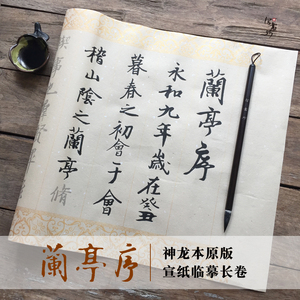 蘭亭序
永和九年歲在癸丑
暮春之初會于會
稽山陰之蘭亭脩
蘭亭序
神龙本原版
宣纸临摹长卷